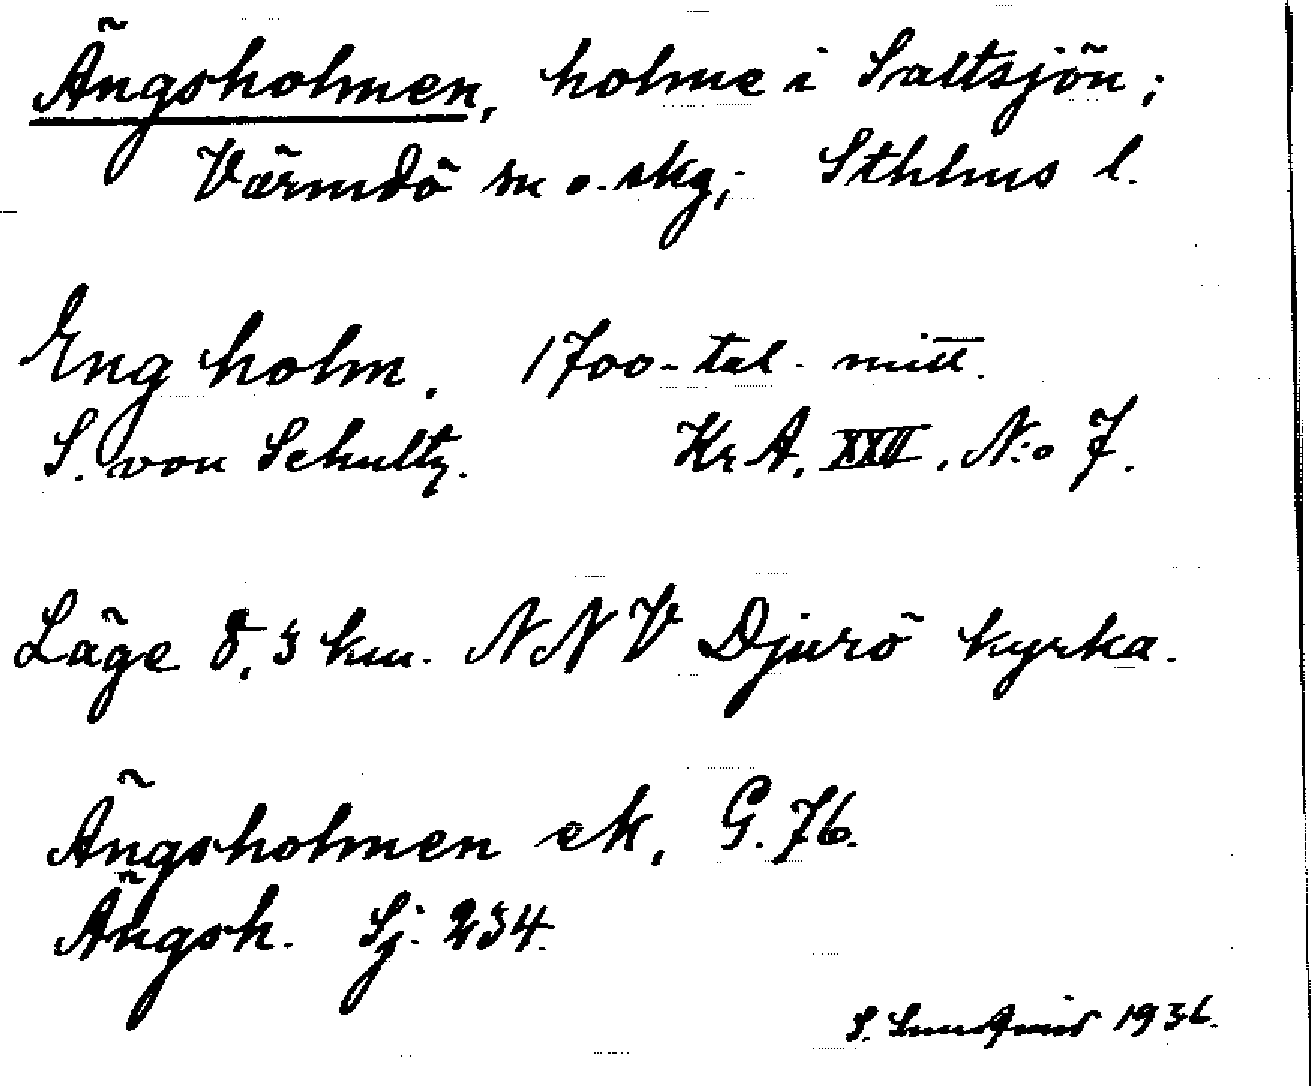 Ängsholmen, holme i Saltsjön;
Värmdö sn o. skg; Sthlms l.
Engholm. 1700-tal. mitt.
S. von Schultz. Kr A. XXII. N:o 7.
Läge 8,3 km. NNV Djurö kyrka.
Ängsholmen ek, G. 76.
Ängsh. Sj. 234.
S. 1936.